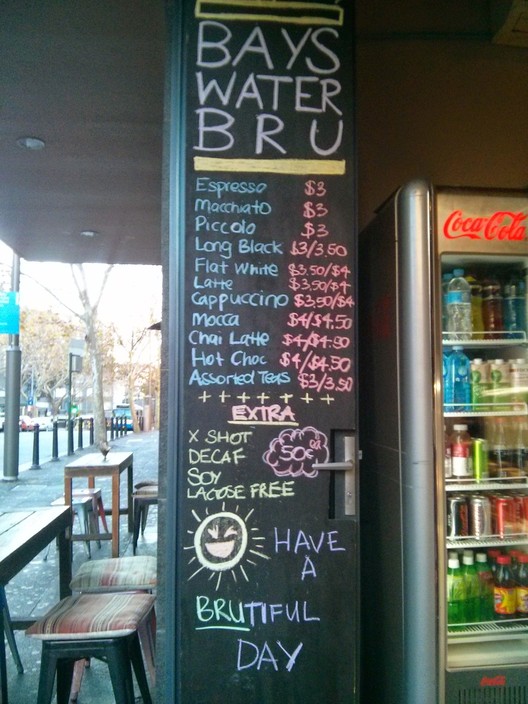 BAYS
WATER
BRU
Espresso $3
Macchiato $3
Piccolo $3
Long Black $3/3.50
Flat White $3.50/$4
Latte $3.50/$4
Cappuccino $3.50/$4
Mocca $4/$4.50
Chai Latte $4/$4.50
Hot Choc $4/$4.50
Assorted Teas $3/3.50
+ + + + + + +
EXTRA
X SHOT
DECAF
SOY
LACTOSE FREE
50¢ ea
HAVE
A
BRUTIFUL
DAY
Coca-Cola